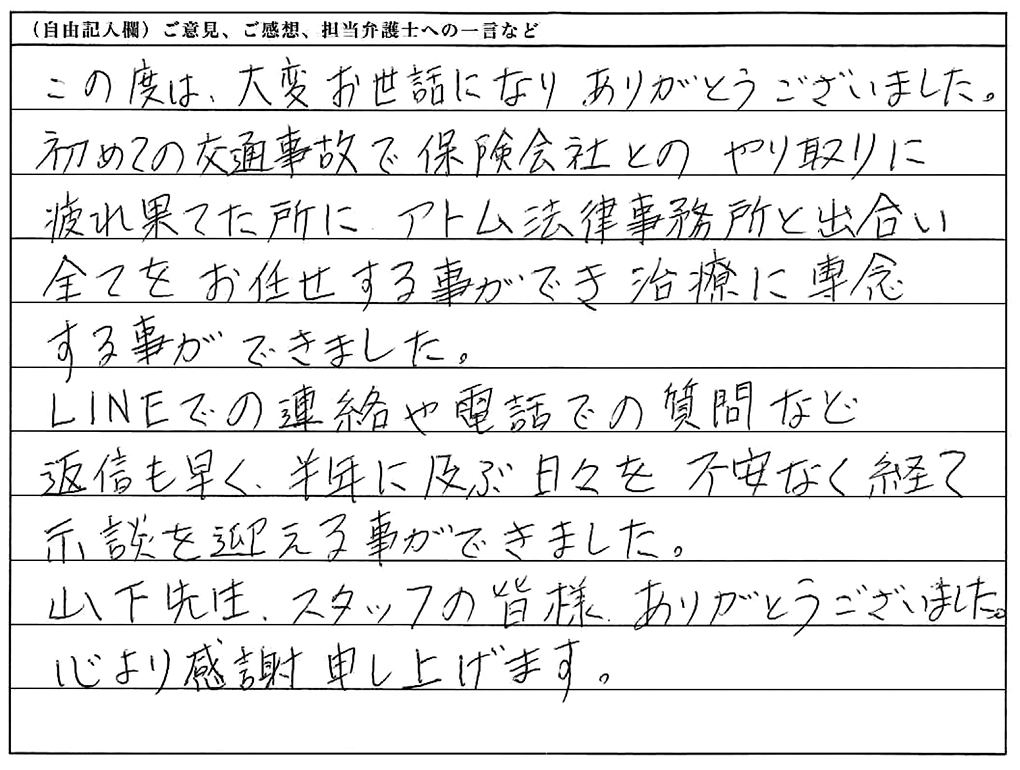 （自由記入欄）ご意見、ご感想、担当弁護士への一言など
この度は、大変お世話になり、ありがとうございました。
初めての交通事故で保険会社とのやり取りに
疲れ果てた所に、アトム法律事務所と出合い
全てをお任せする事ができ治療に専念
する事ができました。
LINEでの連絡や電話での質問など
返信も早く、半年に及ぶ日々を不安なく経て
示談を迎える事ができました。
山下先生、スタッフの皆様、ありがとうございました。
心より感謝申し上げます。